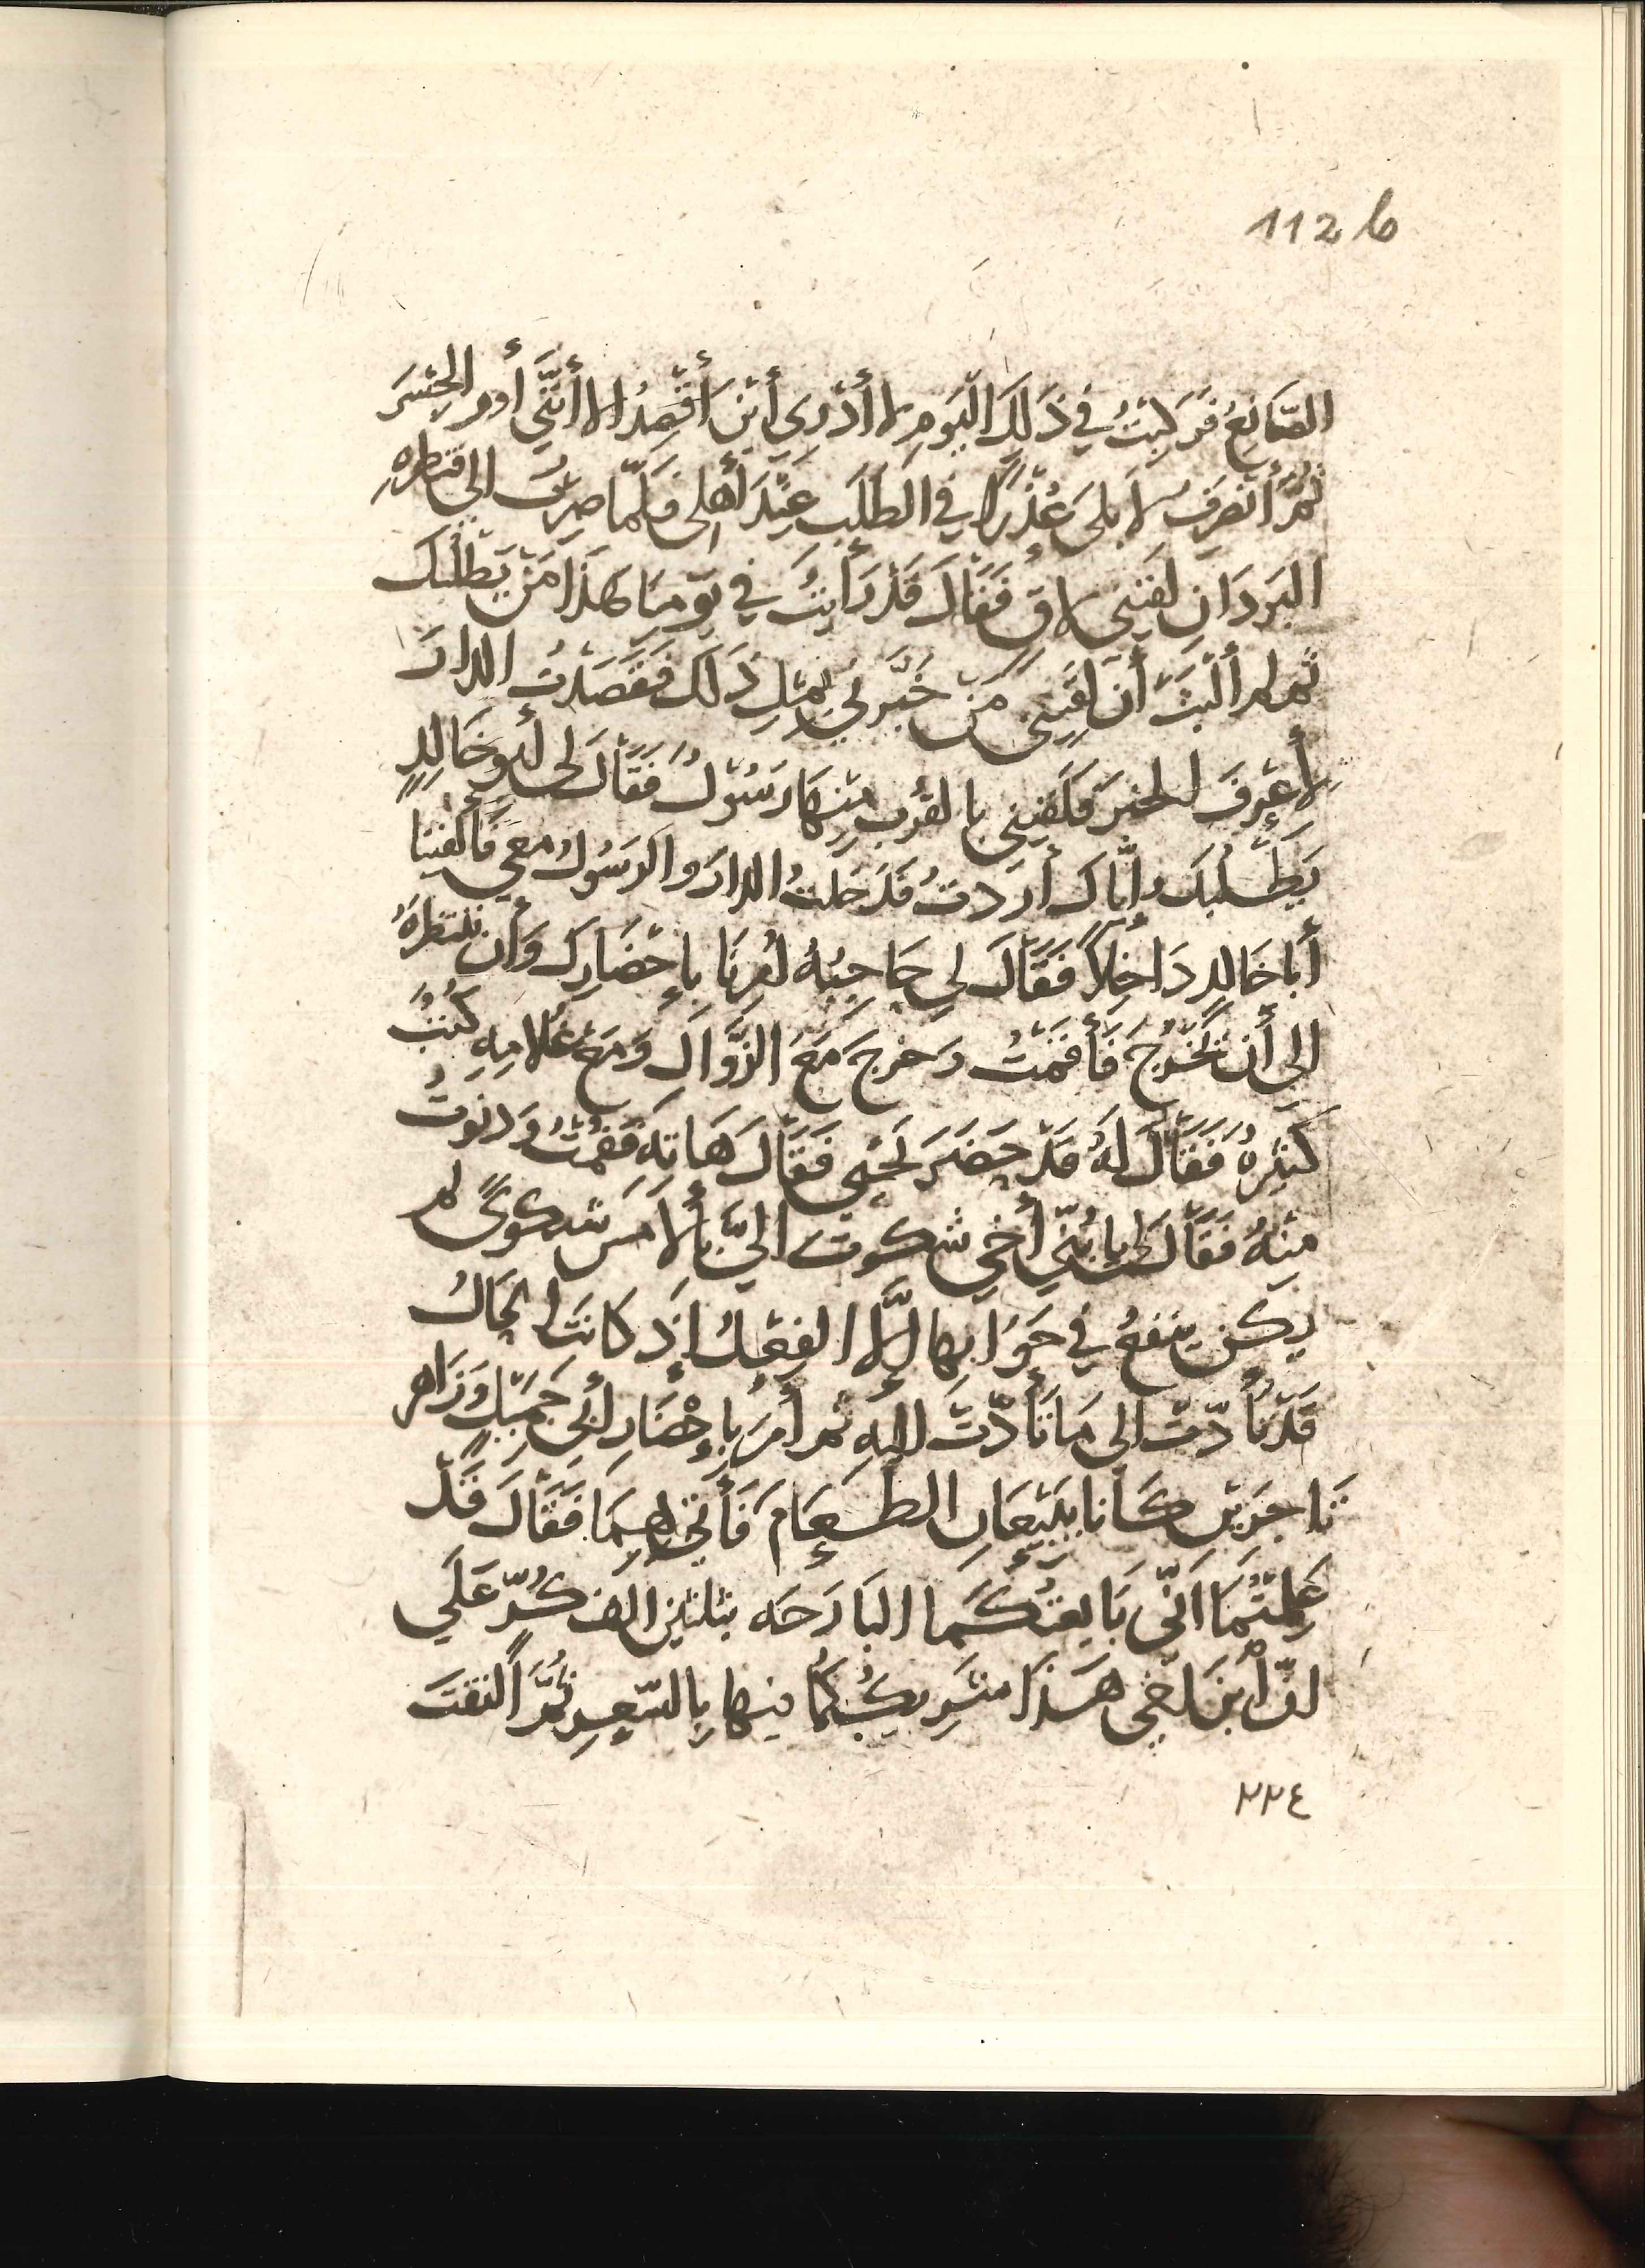 112 b
الصَّانِعُ فَرَكِبْتُ في ذَلِكَ اليَومِ لا أَدْرِي أَيْنَ أَقْصِدُ إلا أنَّني أَؤم الجِسْرَ
ثُمَّ أَنْصَرِفُ لأبلى عُذْرًا في الطَلَبِ عِنْدَ أهلي فلمّا صِرتُ الى قنطرهِ
البَرَدَانِ لَقِيَنِي لاقٍ فَقَالَ قَدْ رَأيتُ في يَوْمِنَا هَذَا مَنْ يَطْلُبُكَ
ثم لم أَلْبَثْ أَنْ لَقِيَنِي مَنْ خَبَّرَنِي بِمِثْلِ ذَلَكَ فَقَصَدْتُ الدارَ
لأَعْرِفَ الخبَرَ فَلَقِيَنِي بالقُربِ مِنْهَا رَسُوْلٌ فَقَالَ لي أبو خَالِدٍ
يَطْلُبُكَ وإيّاكَ أَرَدتُ فَدَخلتُ الدارَ والرَسُولُ معي فَأَلْفَيْنَا
أَبا خالدٍ دَاخِلاً فَقَالَ لي حَاجِبُهُ أَمَرنَا بإحْضَارِكَ وَأَن نَنتظرَهُ
الى أَن نَخْرُجَ فَأَقَمْتُ وَخرجَ مَعَ الزَّوَالِ وَمَعَ غُلامِهِ كُتُبٌ
كَثِيْرهُ فَقَالَ لَهُ قَدْ حَضَرَ نَجْبِي فَقَالَ هَاتِهِ فَقُمْتُ وَدَنوتُ
مِنْهُ فَقَالَ لي يا بُنيّ أَخي شكوت اليَّ بالأَمسِ شكوًى لم
يكن ينفعُ في جَوَابِها إلَّا الفِعْلُ إِذْ كانَت الحَالُ
قَدْ تَأَدّتْ الى مَا تَأَدَّتْ إليهِ ثم أَمَرَ بإِحْضَارِ أَبي جَمِيْلٍ وَزَاهرٍ
تَاجِرَيْنِ كَانا يَبِيْعَانِ الطَعَامَ فَأُتِيَ بِهِمَا فَقَالَ قَدْ
عَلِمتُمَا انِّي بَايعتُكُمَا البَارَحَه بثلثين الف كُرٍّ عَلَي
أنّ ابنَ أَخي هَذَا شَرِيكُكُمَا فيها بِالسّعرِ ثُمَّ التفتَ
٢٢٤